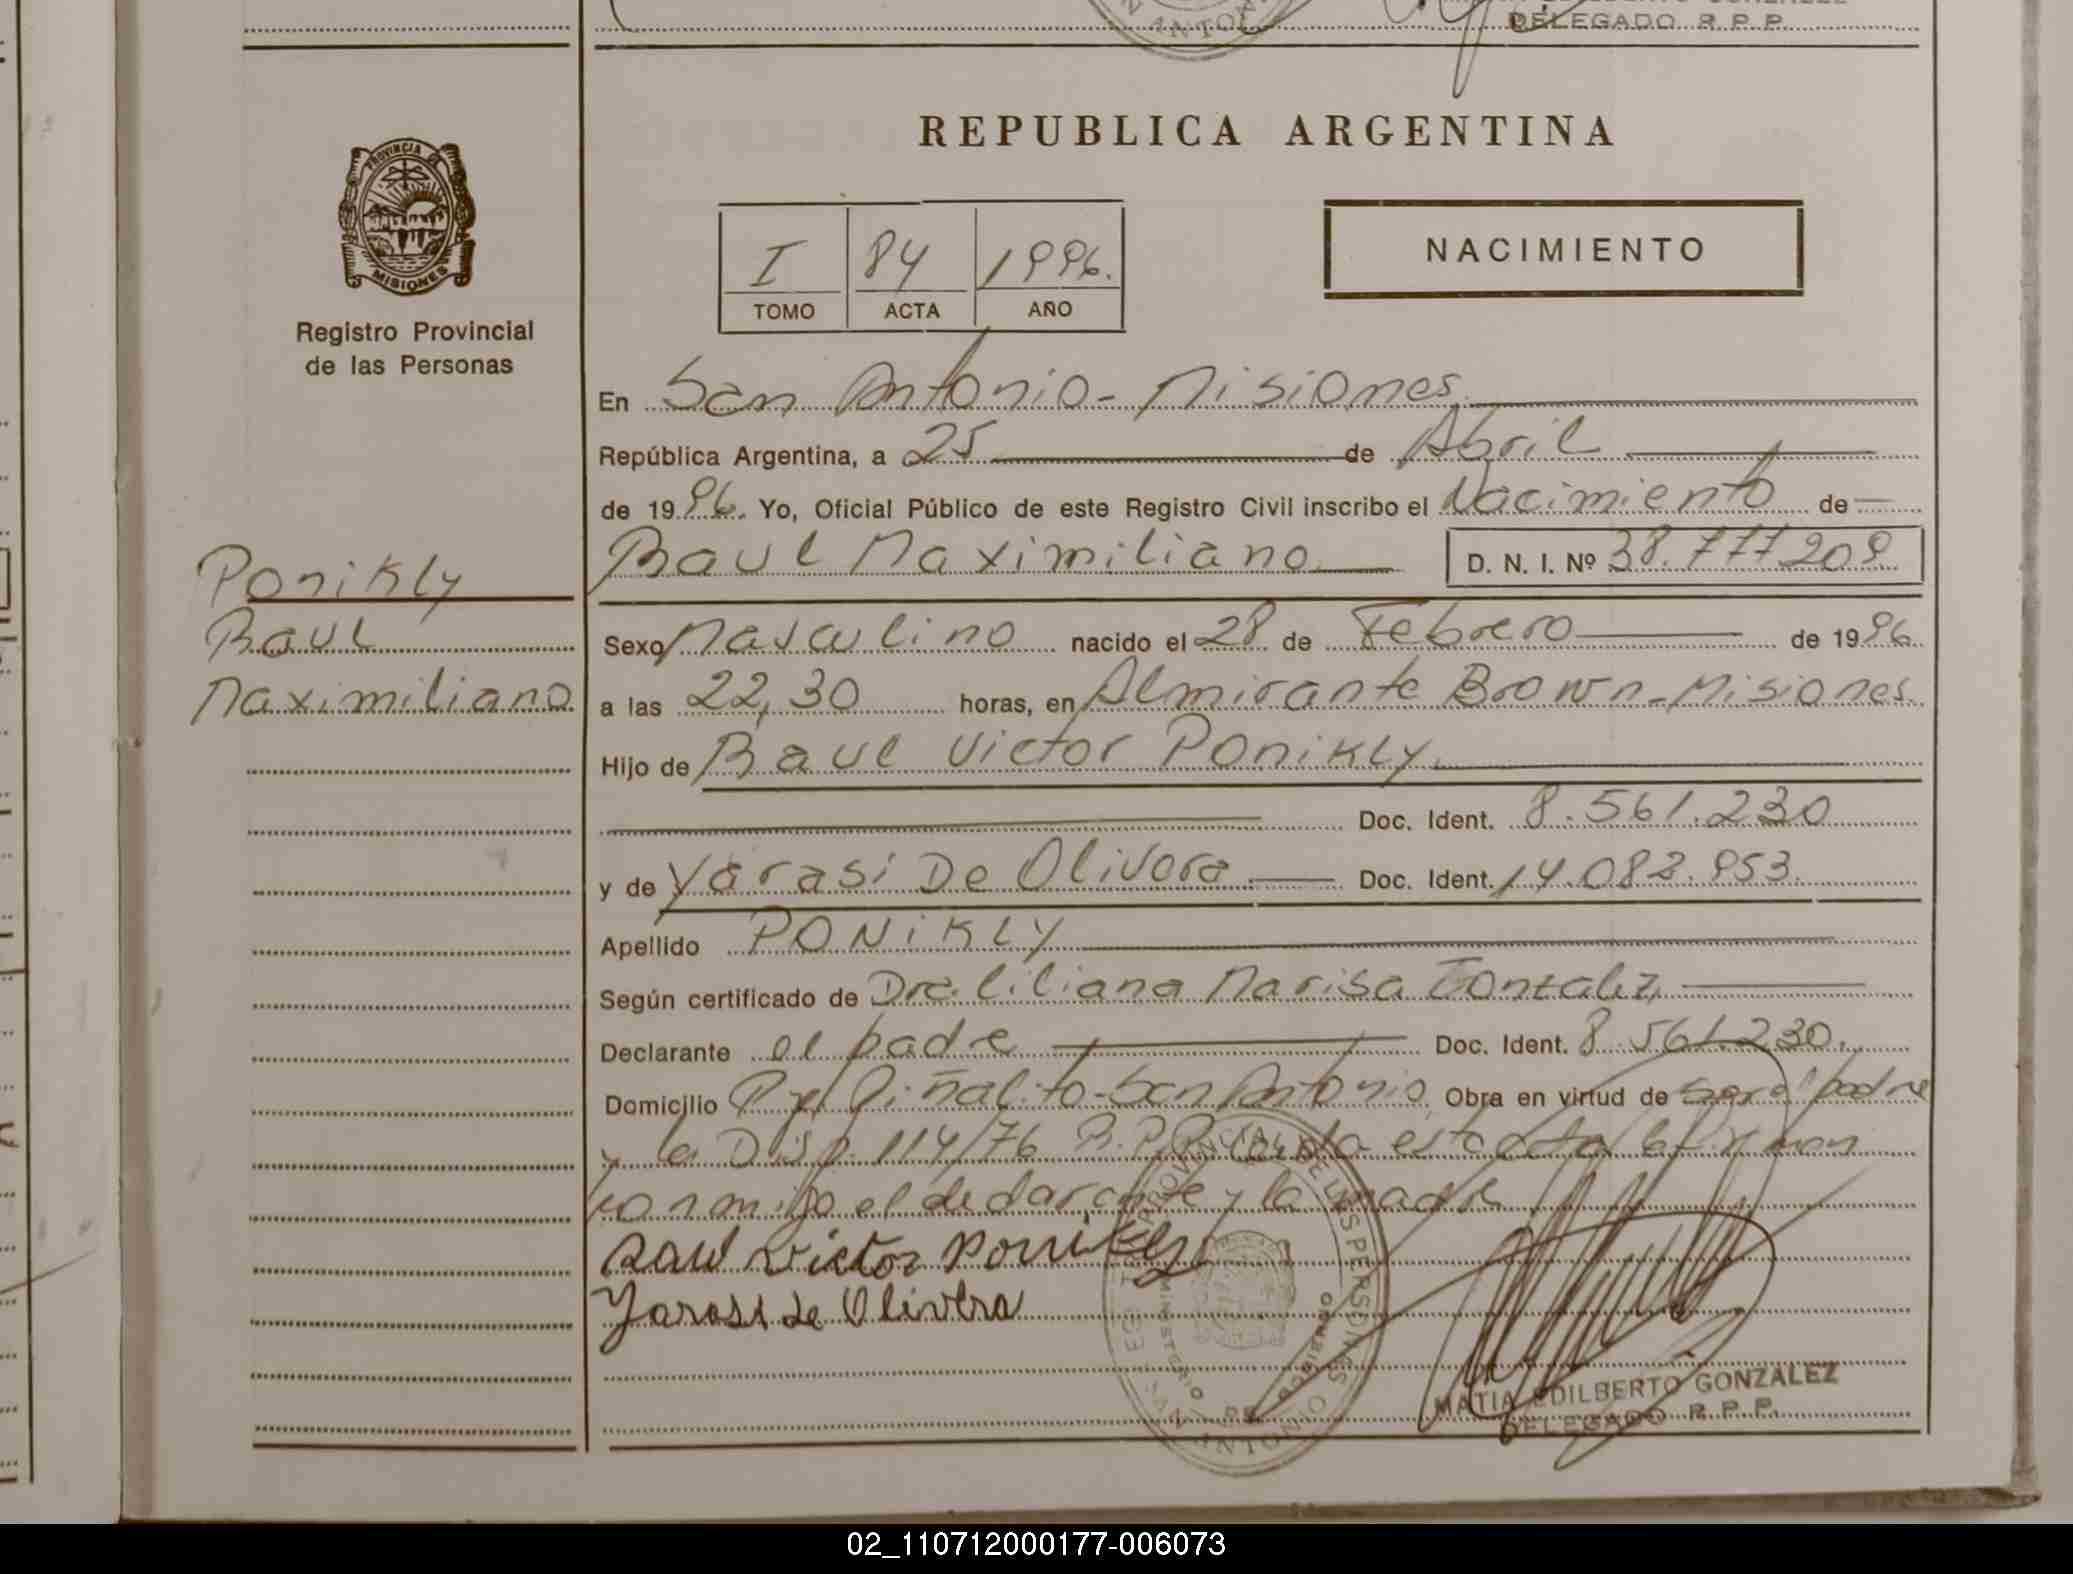 DELEGADO R.P.P.
REPUBLICA ARGENTINA
PROVINCIA DE
MISIONES
Registro Provincial
de las Personas
I 84 1996.
TOMO ACTA AÑO
NACIMIENTO
En San Antonio - Misiones
República Argentina, a 25 de Abril
de 1996. Yo, Oficial Público de este Registro Civil inscribo el Nacimiento de
Raul Maximiliano D. N. I. Nº 38.777209
Ponikly
Raul
Maximiliano
Sexo Masculino nacido el 28 de Febrero de 1996
a las 22,30 horas, en Almirante Brown - Misiones
Hijo de Raul Victor Ponikly
Doc. Ident. 8.561.230
y de Yarasi De Olivera Doc. Ident. 14.082.953
Apellido PONIKLY
Según certificado de Dra. Liliana Marisa Gonzalez
Declarante el padre Doc. Ident. 8.561.230.
Domicilio Piñalito - San Antonio Obra en virtud de ser el padre
y la Disp. 114/76 R.P.P. esta acta la firman
conmigo el declarante y la madre
Raul Victor Ponikly
Yarasi de Olivera
MATIA EDILBERTO GONZALEZ
DELEGADO R.P.P.
REG. PROVINCIAL DE LAS PERSONAS
MINISTERIO DE GOBIERNO
SAN ANTONIO
02_110712000177-006073